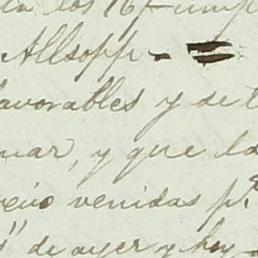 los 16
Allsopp. =
favorables y se
mar, y que la
venidas p.
" de ayer y hoy